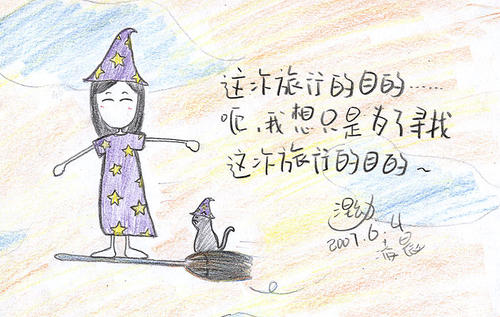 这次旅行的目的……
呃，我想只是为了寻找
这次旅行的目的~
2007.6.4
清晨